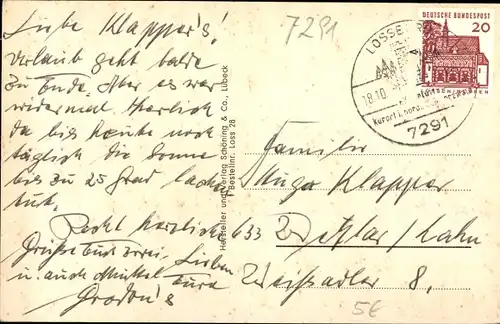 Liebe Klapper's!
Urlaub geht balde
zu Ende. Aber es war
wiedermal herrlich
da bis heute noch
täglich die Sonne
bis zu 25 Grad lacht
tut.
Recht herzliche
Grüsse Euch zwei, Lieben
u. auch Muttel Eure
7291
LOSSBURG
18.10
Kurort i. nördl.
7291
DEUTSCHE BUNDESPOST
20
Hersteller und Verlag Schöning & Co., Lübeck
Bestellnr. Loss 28
Familie
Hugo Klapper
633 Wetzlar/Lahn
8,
5€